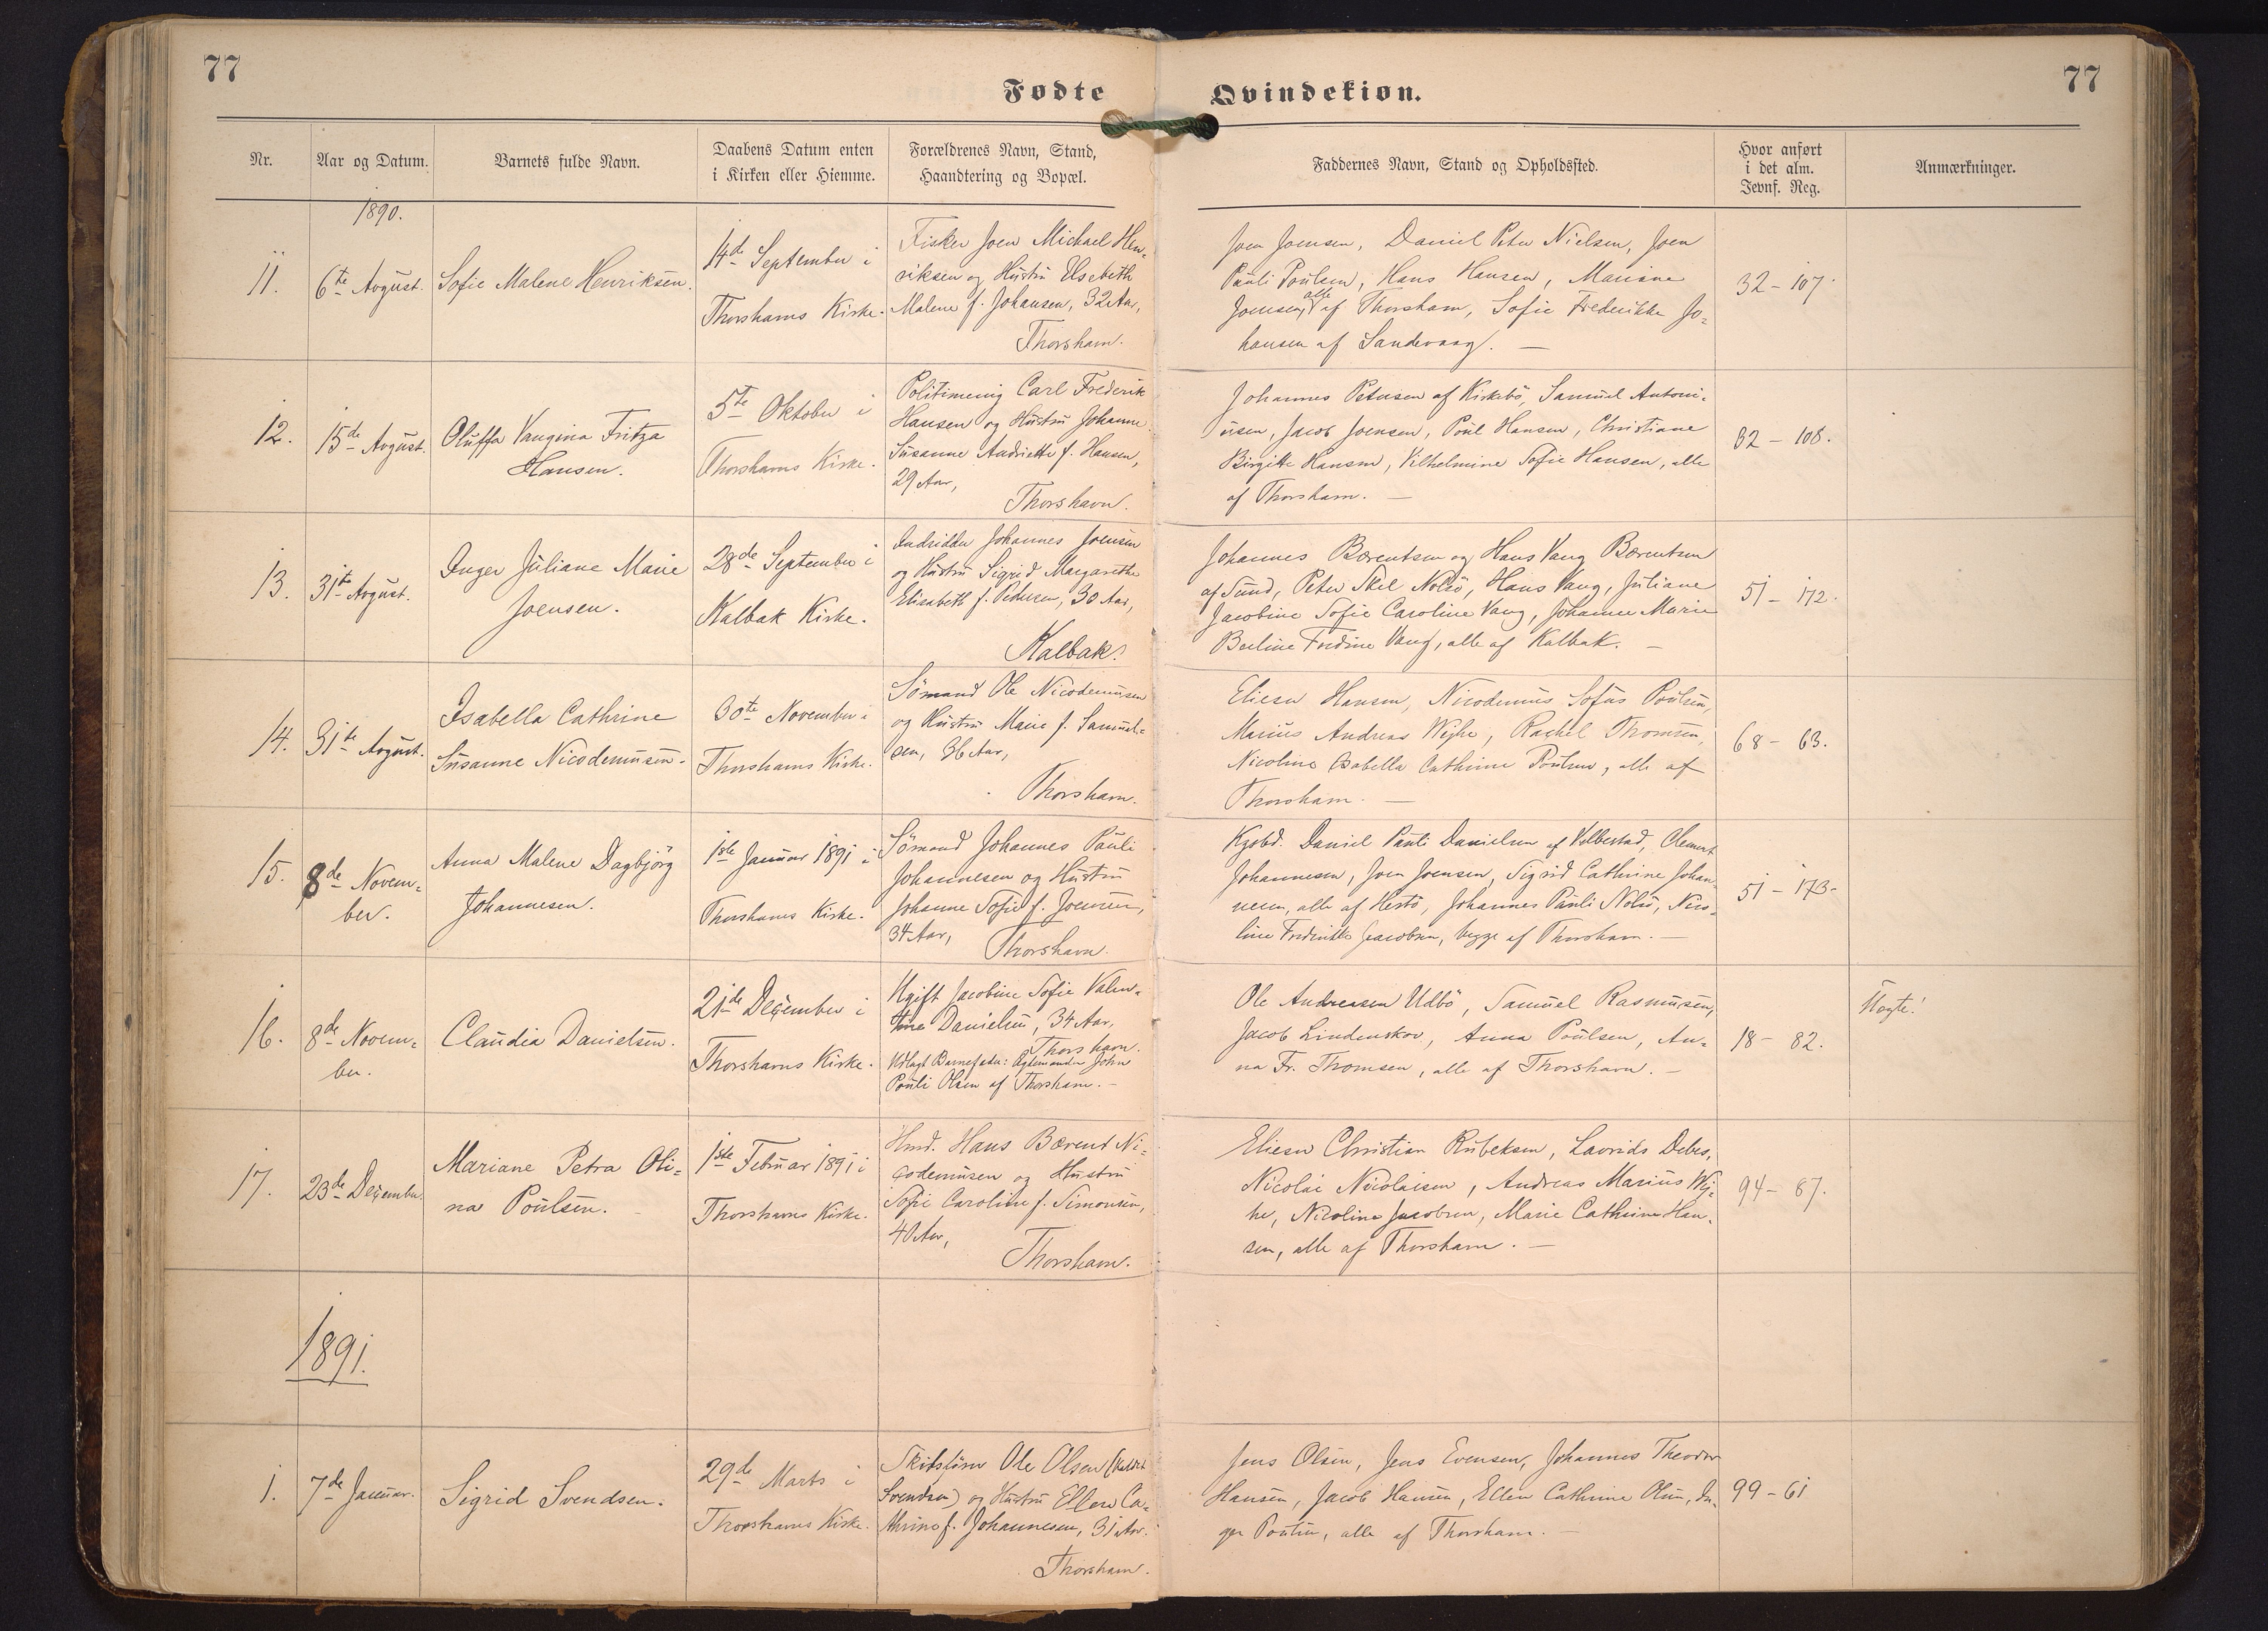 77
Fødte Qvindekiøn.
77
Nr.
Aar og Datum.
Barnets fulde Navn.
Daabens Datum enten
i Kirken eller Hiemme.
Forældrenes Navn, Stand,
Haandtering og Bopæl.
Faddernes Navn, Stand og Opholdssted.
Hvor anført
i det alm.
Jevnf. Reg.
Anmærkninger.
1890.
11.
6te Avgust.
Sofie Malene Henriksen.
14de September i
Thorshavns Kirke.
Fisker Joen Michael Hen-
riksen og Hustru Elsebeth
Malene f. Johansen, 32 Aar,
Thorshavn.
Joen Joensen, Daniel Peter Nielsen, Joen
Pauli Poulsen, Hans Hansen, Mariane
Joensen, alle af Thorshavn, Sofie Frederikke Jo-
hansen af Sandevaag. —
32 - 107.
12.
15de Avgust.
Oluffa Vangina Fritza
Hansen.
5te Oktober i
Thorshavns Kirke.
Politimenig Carl Frederik
Hansen og Hustru Johanne
Susanne Andriette f. Hansen,
29 Aar,
Thorshavn.
Johannes Petersen af Kirkebö, Samuel Antoni-
usen, Jacob Joensen, Poul Hansen, Christiane
Birgitte Hansen, Vilhelmine Sofie Hansen, alle
af Thorshavn. —
32 - 108.
13.
31te Avgust.
Inger Juliane Marie
Joensen.
28de September i
Kalbak Kirke.
Indsidder Johannes Joensen
og Hustru Sigrid Margarethe
Elisabeth f. Pedersen, 30 Aar,
Kalbak.
Johannes Bærentsen og Hans Vang Bærentsen
af Sund, Peter Skel Nolsö, Hans Vang, Juliane
Jacobine Sofie Caroline Vang, Johanne Marie
Berline Fredine Vang, alle af Kalbak. —
51 - 172.
14.
31te Avgust.
Isabella Cathrine
Susanne Nicodemusen.
30te November i
Thorshavns Kirke.
Sömand Ole Nicodemusen
og Hustru Marie f. Samuel-
sen, 36 Aar,
Thorshavn.
Elieser Hansen, Nicodemus Sofus Poulsen,
Marius Andreas Wejhe, Rachel Thomsen,
Nicoline Isabella Cathrine Poulsen, alle af
Thorshavn. —
68 - 63.
15.
8de Novem-
ber.
Anna Malene Dagbjörg
Johannesen.
1ste Januar 1891 i
Thorshavns Kirke.
Sömand Johannes Pauli
Johannesen og Hustru
Johanne Sofie f. Joensen,
34 Aar,
Thorshavn.
Kgsbd. Daniel Pauli Danielsen af Velbestad, Clement
Johannesen, Joen Joensen, Sigrid Cathrine Johan-
nesen, alle af Hestö, Johannes Pauli Nolsö, Nico-
line Fredrikke Jacobsen, begge af Thorshavn. —
51 - 173.
16.
8de Novem-
ber.
Claudia Danielsen.
21de December i
Thorshavns Kirke.
Ugift Jacobine Sofie Valen-
tine Danielsen, 34 Aar,
Thorshavn.
Udlagt Barnefader: Agtemanden John
Pouli Olsen af Thorshavn. —
Ole Andreasen Udbö, Samuel Rasmussen,
Jacob Lindenskov, Anna Poulsen, An-
na Fr. Thomsen, alle af Thorshavn. —
18 - 82.
Uægte!
17.
23de December.
Mariane Petra Oli-
na Poulsen.
1ste Februar 1891 i
Thorshavns Kirke.
Hmd. Hans Bærend Ni-
codemusen og Hustru
Sofie Caroline f. Simonsen,
40 Aar,
Thorshavn.
Elieser Christian Rubeksen, Lavrids Debes,
Nicolai Nicolaisen, Andreas Marius Wej-
he, Nicoline Jacobsen, Marie Cathrine Han-
sen, alle af Thorshavn. —
94 - 87.
1891.
1.
7de Januar.
Sigrid Svendsen.
29de Marts i
Thorshavns Kirke.
Skibsförer Ole Olsen (kaldet
Svendsen) og Hustru Ellen Ca-
thrine f. Johannesen, 31 Aar.
Thorshavn.
Jens Olsen, Jens Evensen, Johannes Theodor
Hansen, Jacob Hansen, Ellen Cathrine Olsen, In-
ger Poulsen, alle af Thorshavn. —
99 - 61